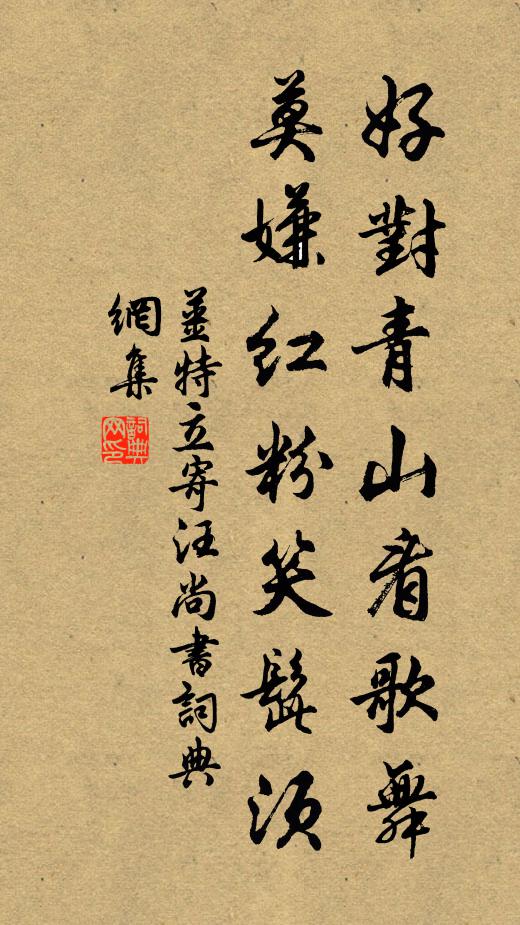 好對青山看歌舞
莫嫌紅粉笑髭須
姜特立寄汪尚書詞典
網集
詞典網印